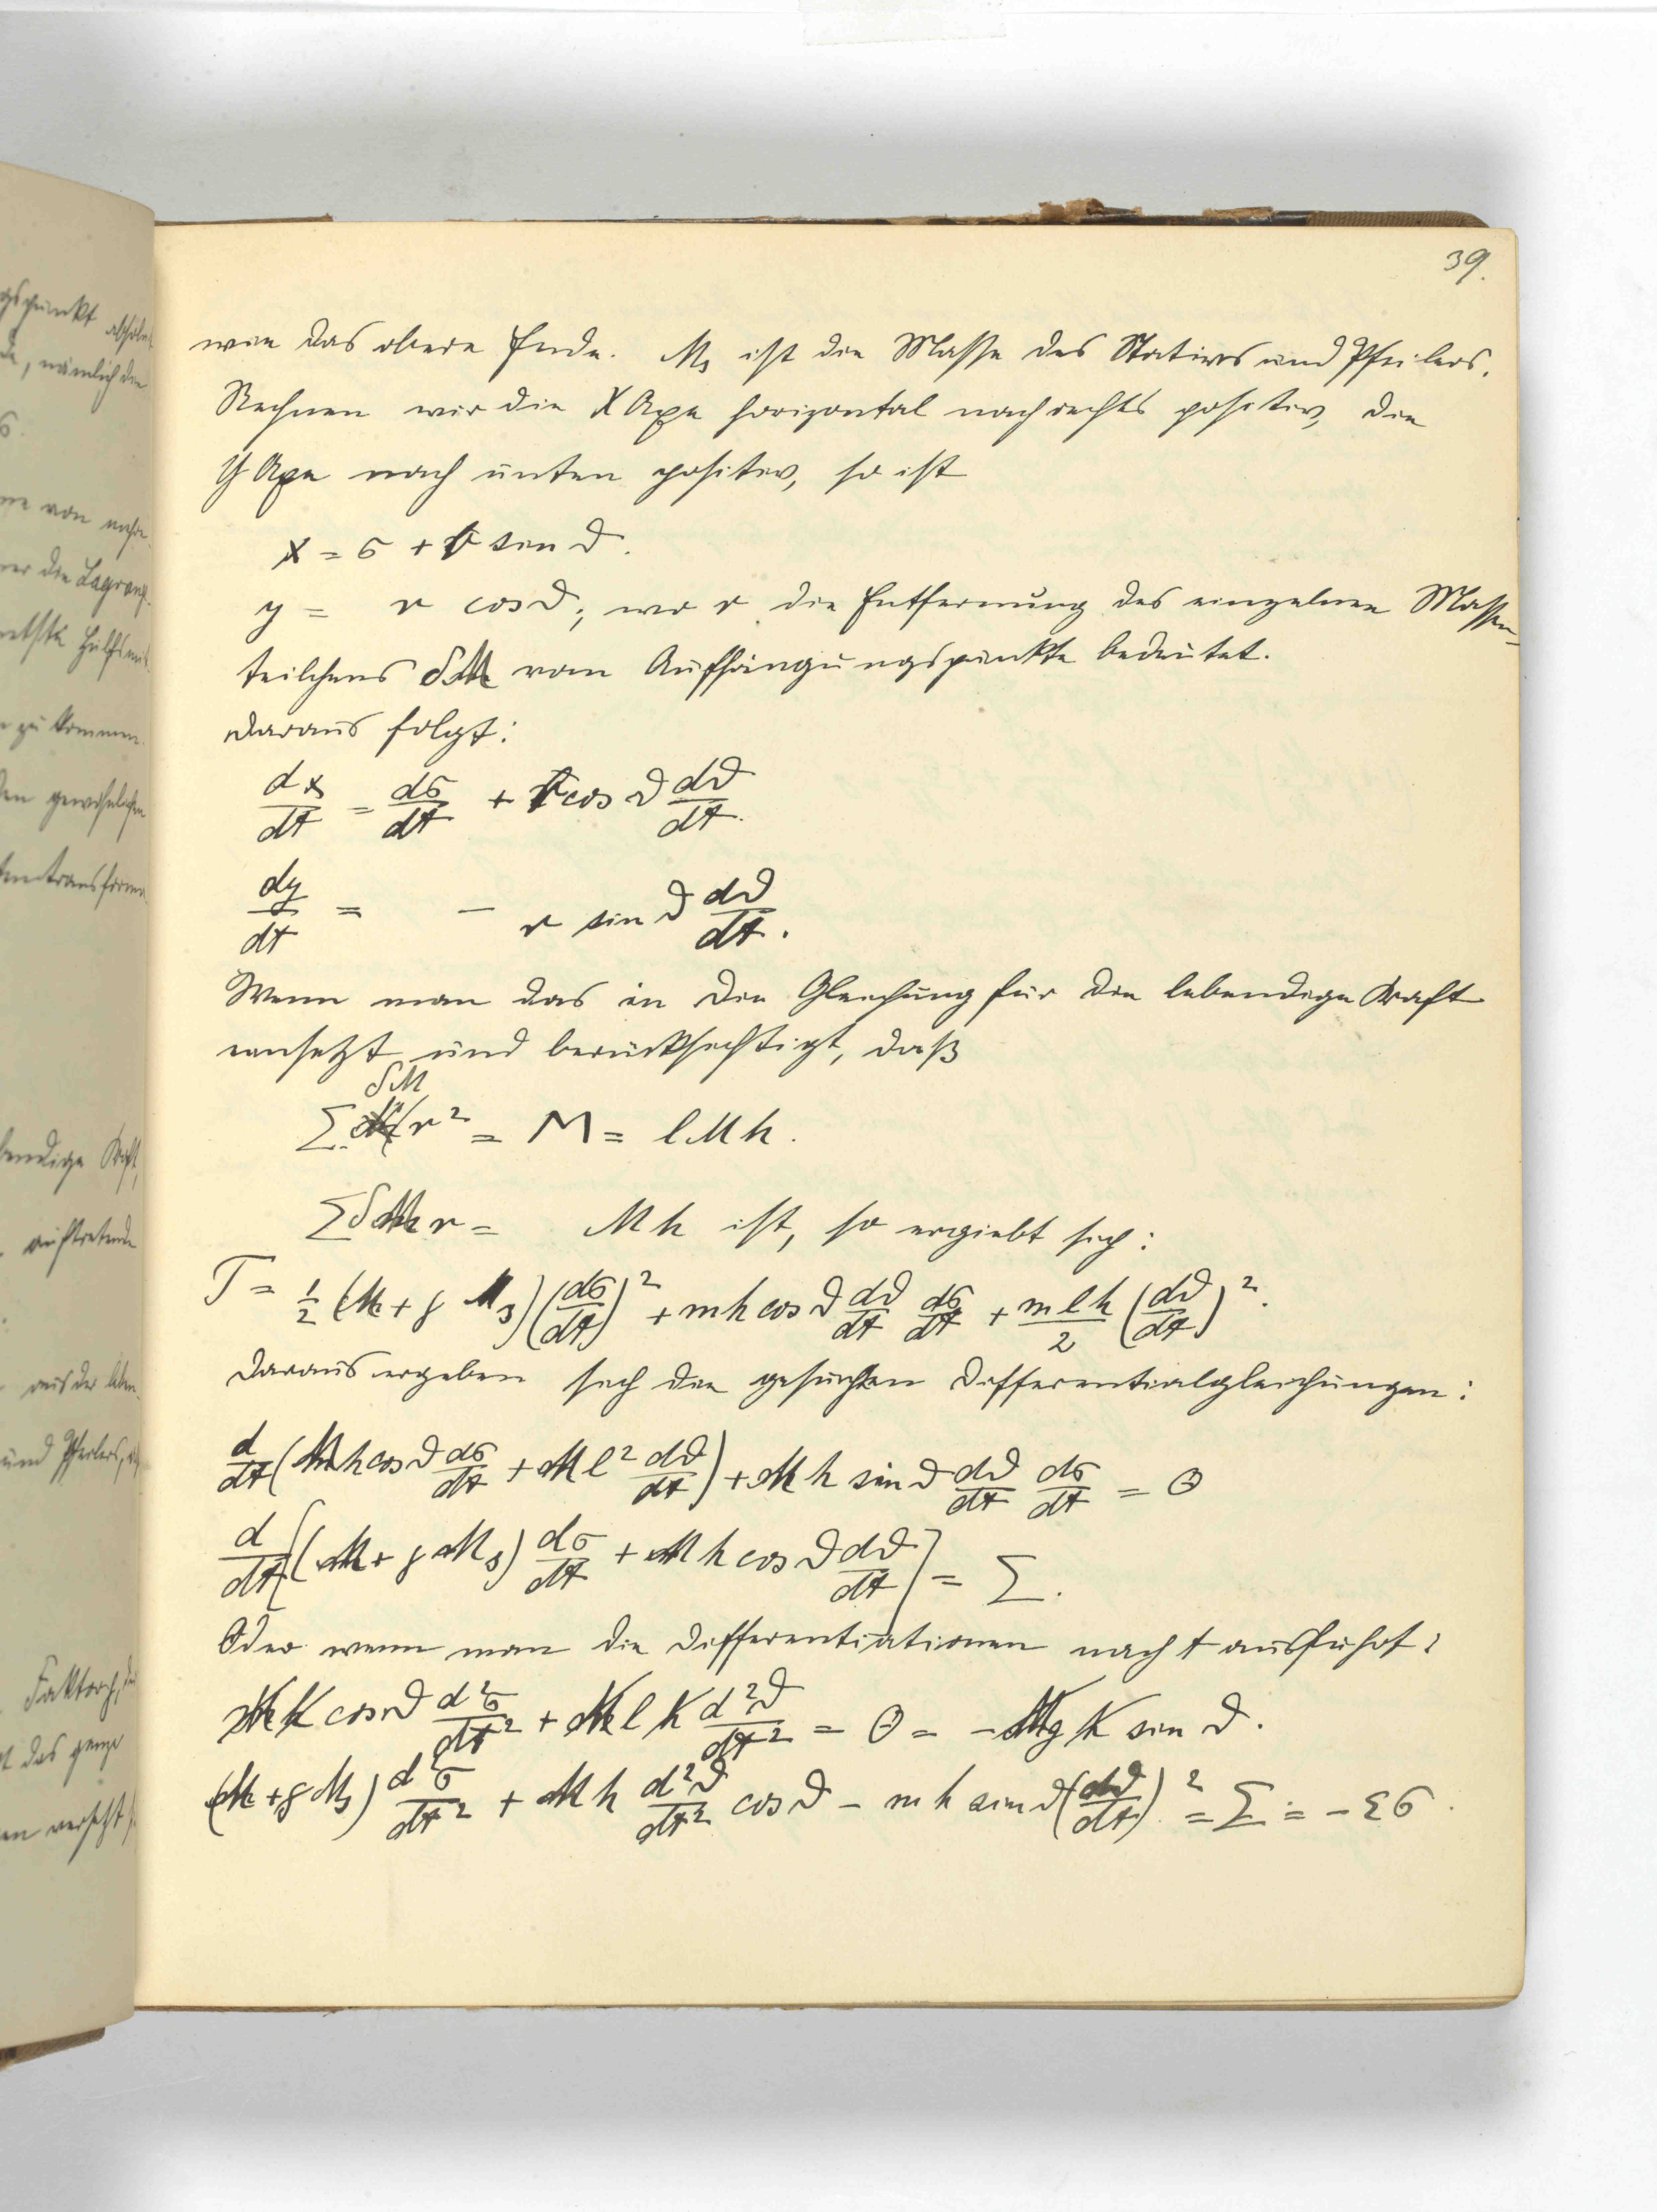 39.
wie das obere Ende. M₃ ist die Masse des Stativs und Pfeilers.
Rechnen wir die X Axe horizontal nach rechts positiv, die
Y Axe nach unten positiv, so ist
x = σ + r sin ϑ.
y = r cos ϑ; wo r die Entfernung des einzelnen Massen-
teilchens δM vom Aufhängungspunkte bedeutet.
Daraus folgt:
dx/dt = dσ/dt + r cos ϑ dϑ/dt.
dy/dt = − r sin ϑ dϑ/dt.
Wenn man das in die Gleichung für die lebendige Kraft
einsetzt und berücksichtigt, daß
∑ δM r² = M = l M h.
∑ δM r = M h ist, so ergiebt sich:
T = 1/2 (M + γ M₃)(dσ/dt)² + m h cos ϑ dϑ/dt dσ/dt + m l h/2 (dϑ/dt)².
Daraus ergeben sich die gesuchten Differentialgleichungen:
d/dt (M h cos ϑ dσ/dt + M l² dϑ/dt) + M h sin ϑ dϑ/dt dσ/dt = Θ
d/dt [(M + γ M₃) dσ/dt + M h cos ϑ dϑ/dt] = Σ.
Oder wenn man die Differentiationen nach t ausführt:
M h cos ϑ d²σ/dt² + M l h d²ϑ/dt² = Θ = − M g h sin ϑ.
(M + γ M₃) d²σ/dt² + M h d²ϑ/dt² cos ϑ − m h sin ϑ (dϑ/dt)² = Σ = − εσ.